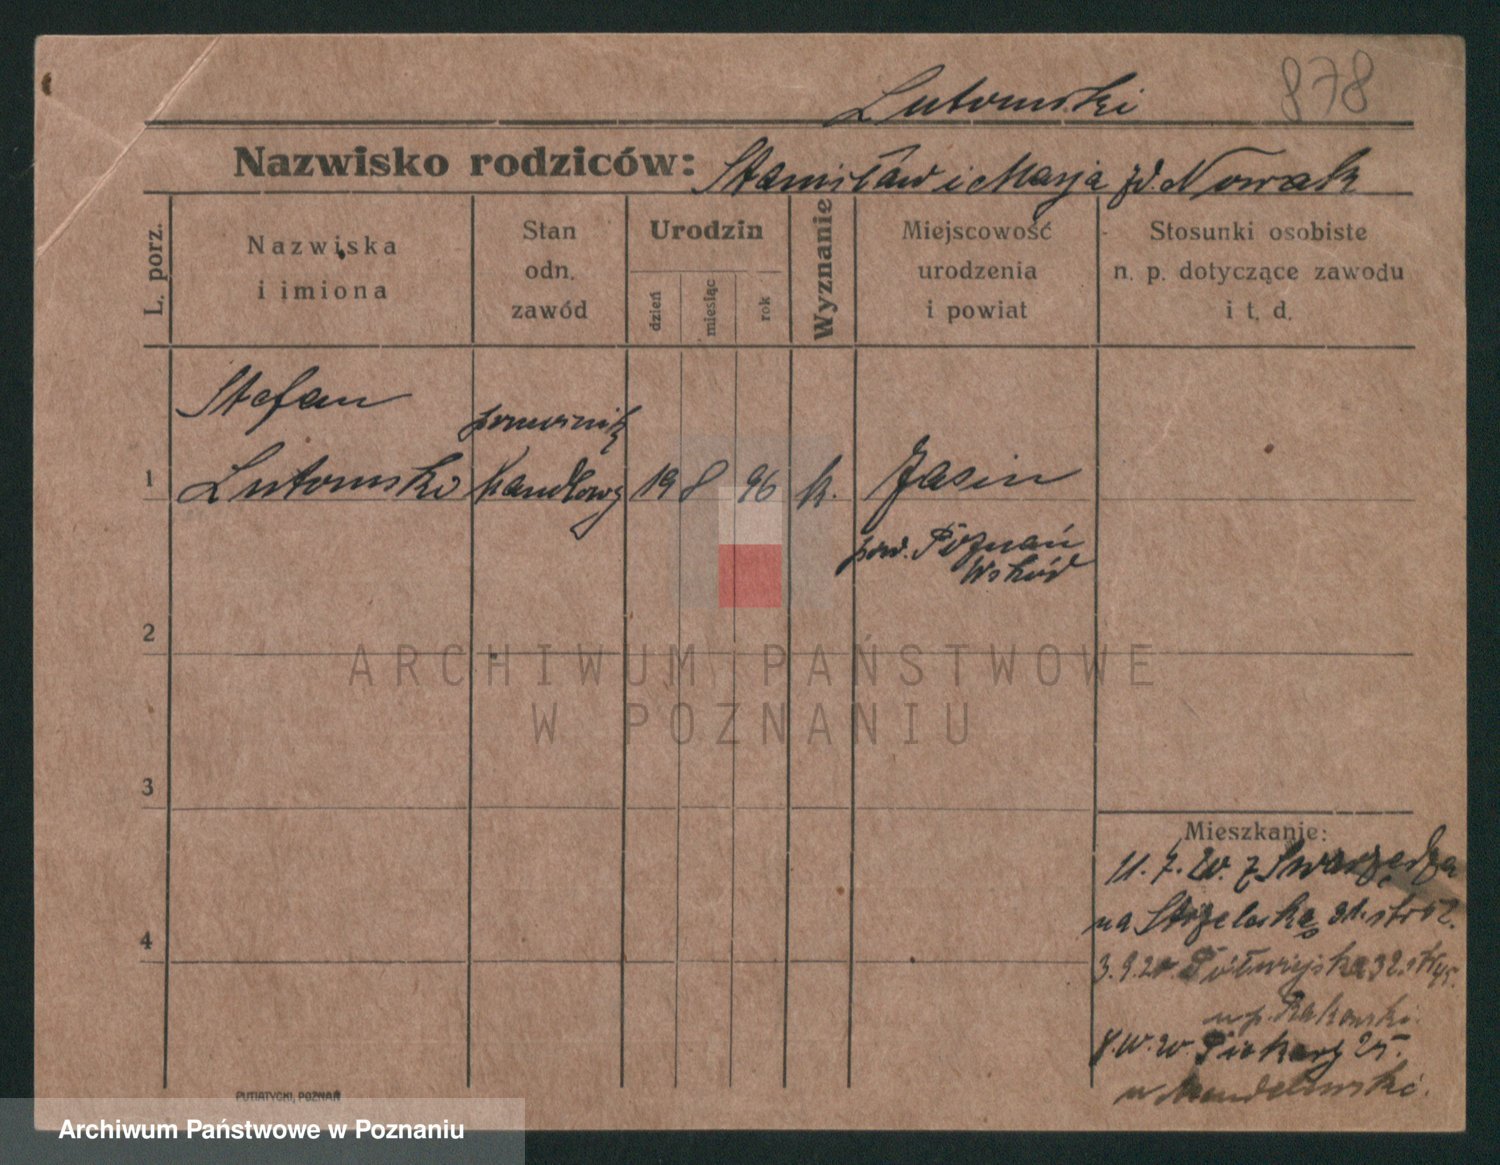 878
Lutomski
Nazwisko rodziców: Stanisław i Marja zd. Nowak
L. porz.
Nazwiska
i imiona
Stan
odn.
zawód
Urodzin
dzień
miesiąc
rok
Wyznanie
Miejscowość
urodzenia
i powiat
Stosunki osobiste
n. p. dotyczące zawodu
i t. d.
Stefan
pomocnik
1 Lutomski handlowy 19 8 96 k. Jasin
pow. Poznań
Wschód
2
ARCHIWUM PAŃSTWOWE
W POZNANIU
3
Mieszkanie:
11. 7. 20. z Swarzędza
na Strzelecką 31.
4
3. 9. 20. Półwiejska 32.
u p. Rakowski.
Piekary 25.
u
PUTIATYCKI, POZNAŃ
Archiwum Państwowe w Poznaniu